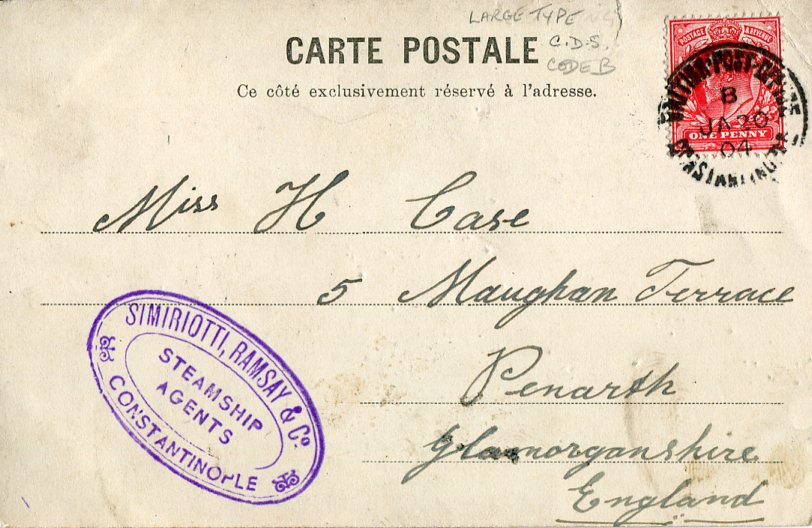 LARGE TYPE
C.D.S.
CODE B
CARTE POSTALE
Ce côté exclusivement réservé à l'adresse.
POSTAGE & REVENUE
ONE PENNY
BRITISH POST OFFICE
B
JA 20
04
Miss H Case
5 Maughan Terrace
Penarth
Glamorganshire
England
SIMIRIOTTI, RAMSAY & Co
STEAMSHIP
AGENTS
CONSTANTINOPLE